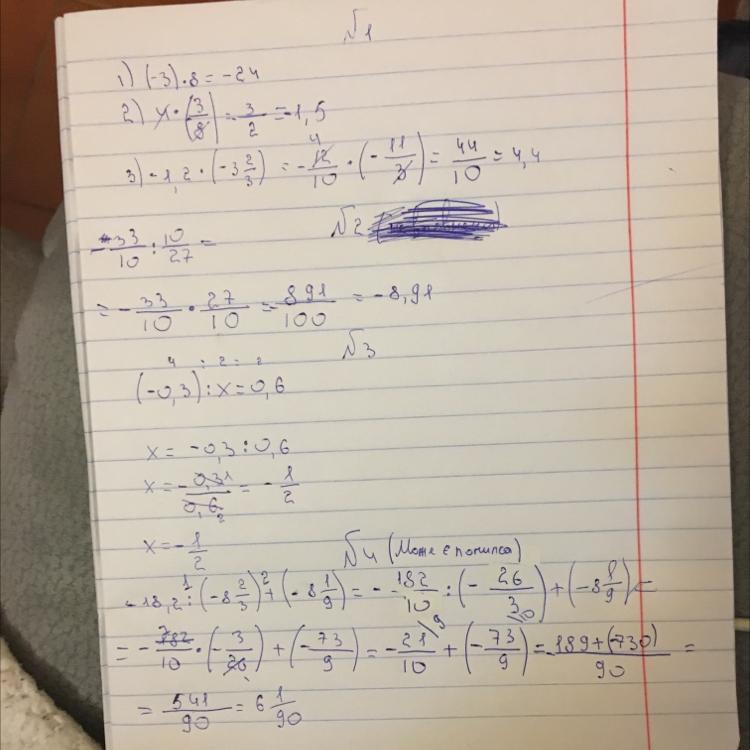 №1
1) (-3)·8 = -24
2) 4·(3/8) = 3/2 = -1,5
3) -1,2·(-3 2/3) = -12/10·(-11/3) = 44/10 = 4,4
№2
-33/10 : 10/27 =
= -33/10 · 27/10 = -891/100 = -8,91
№3
4 : 2 = 2
(-0,3) : x = 0,6
x = -0,3 : 0,6
x = -0,3/0,6 = -1/2
x = -1/2
№4 (Може є помилка)
-18,2 : (-8 2/3) + (-8 1/9) = -182/10 : (-26/3) + (-8 1/9) =
= -182/10 · (-3/26) + (-73/9) = -21/10 + (-73/9) = 189+(-730)/90 =
= 541/90 = 6 1/90